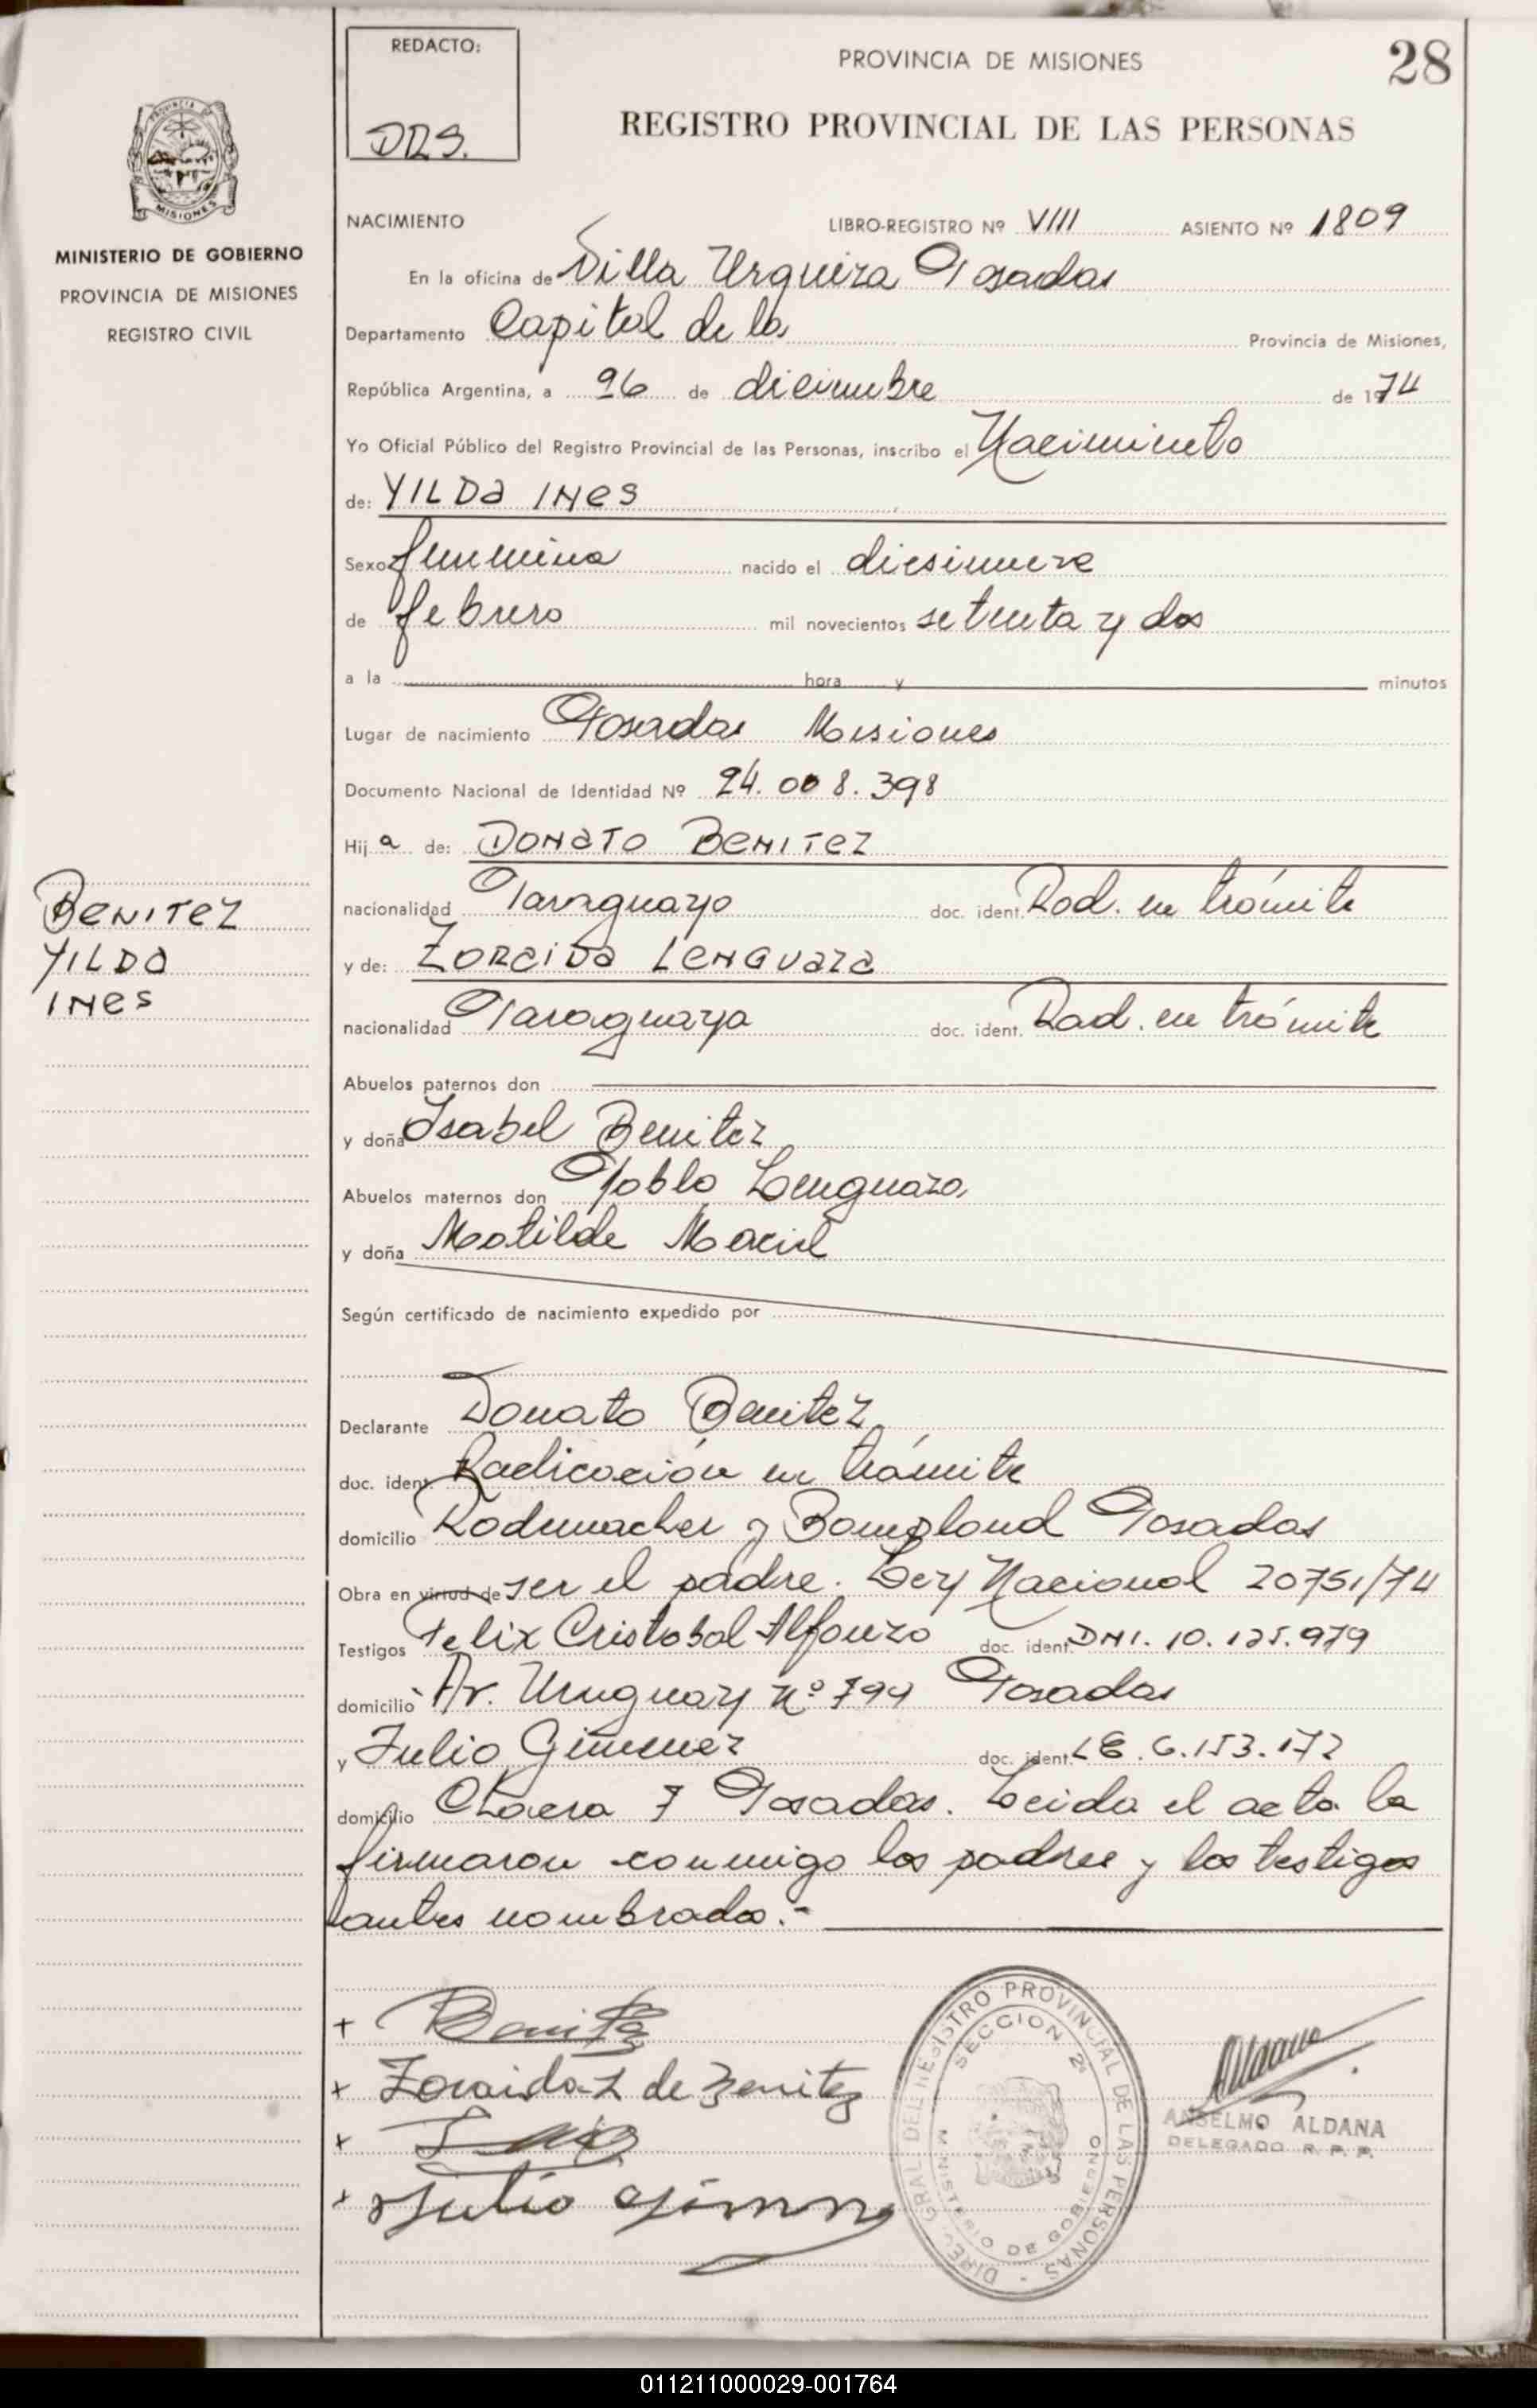 REDACTO:
DRS.
PROVINCIA DE MISIONES
28
REGISTRO PROVINCIAL DE LAS PERSONAS
MISIONES
MINISTERIO DE GOBIERNO
PROVINCIA DE MISIONES
REGISTRO CIVIL
NACIMIENTO LIBRO-REGISTRO Nº VIII ASIENTO Nº 1809
En la oficina de Villa Urquiza Posadas
Departamento Capital de la Provincia de Misiones,
República Argentina, a 26 de diciembre de 1974
Yo Oficial Público del Registro Provincial de las Personas, inscribo el Nacimiento
de: YILDA INES
Sexo femenino nacido el diesinueve
de febrero mil novecientos setenta y dos
a la hora y minutos
Lugar de nacimiento Posadas Misiones
Documento Nacional de Identidad Nº 24.008.398
Hija de: DONATO BENITEZ
nacionalidad Paraguayo doc. ident. Rad. en trámite
y de: ZORAIDA LENGUAZA
nacionalidad Paraguaya doc. ident. Rad. en trámite
BENITEZ
YILDA
INES
Abuelos paternos don
y doña Isabel Benitez
Abuelos maternos don Pablo Lenguaza
y doña Matilde Maciel
Según certificado de nacimiento expedido por
Declarante Donato Benitez
doc. ident. Radicación en trámite
domicilio Rademacher y Bompland Posadas
Obra en virtud de ser el padre. Ley Nacional 20751/74
Testigos Felix Cristobal Alfonzo doc. ident. DNI. 10.125.979
domicilio Av. Uruguay nº 799 Posadas
y Julio Gimenez doc. ident. LE. 6.153.172
domicilio Chacra 7 Posadas. Leida el acta la
firmaron conmigo los padres y los testigos
antes nombrados.-
+ Benitez
x Zoraida L de Benitez
x
x Julio Gimenez
DIREC. GRAL. DEL REGISTRO PROVINCIAL DE LAS PERSONAS
SECCION 2ª
MINISTERIO DE GOBIERNO
Aldana
ANSELMO ALDANA
DELEGADO R. P. P.
011211000029-001764